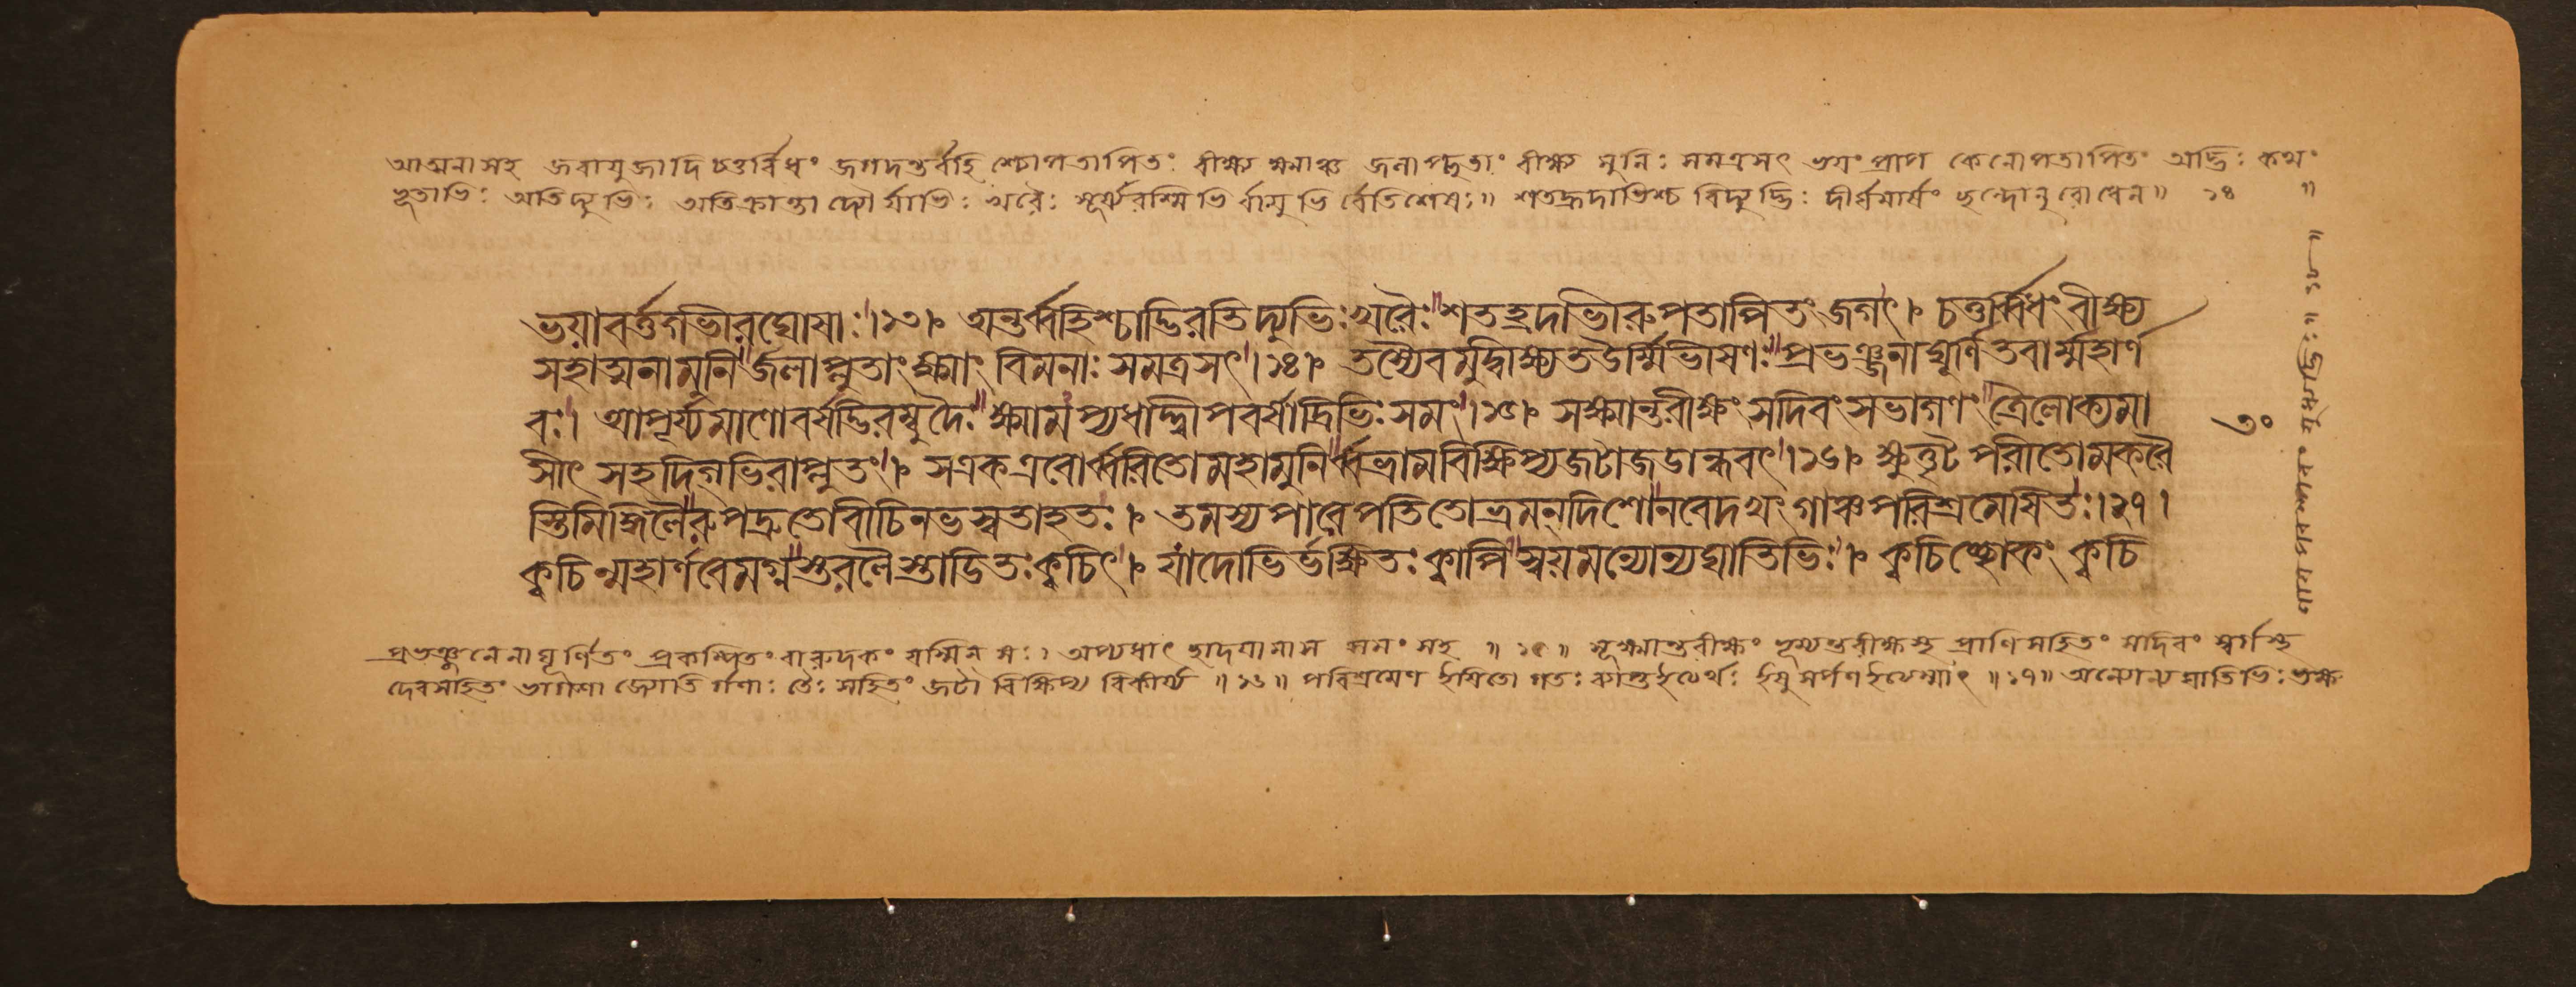 আত্মনা সহ জরায়ুজাদি চতুর্বিধং জগদন্তর্বহিশ্চোপতাপিতং বীক্ষ্য ক্ষ্মাঞ্চ জলাপ্লুতাং বীক্ষ্য মুনিঃ সমত্রসৎ ভয়ং প্রাপ কেনোপতাপিতং অদ্ভিঃ কথং
ভূতাভিঃ অতিদ্যুভিঃ অতিক্রান্তা দ্যৌর্যাভিঃ খরৈঃ সূর্য্যরশ্মিভি র্বায়ুভি র্বেতিশেষঃ॥ শতহ্রদাভিশ্চ বিদ্যুদ্ভিঃ দীর্ঘমার্ষং ছন্দোনুরোধেন॥ ১৪ ॥
ভয়াবর্ত্তগভীরঘোষাঃ।১৩। অন্তর্ব্বহিশ্চাদ্ভিরতিদ্যুভিঃখরৈঃ শতহ্রদভীরুপতাপিতংজগৎ। চতুর্ব্বিধংবীক্ষ্য
সহাত্মনামুনির্জলাপ্লুতাংক্ষ্মাং বিমনাঃ সমত্রসৎ।১৪। তস্যৈবমুদ্বীক্ষ্যতঊর্ম্মিভীষণঃপ্রভঞ্জনাঘূর্ণিতবার্ম্মহার্ণ
বঃ। আপূর্য্যমাণোবর্ষদ্ভিরম্বুদৈঃ ক্ষ্মামপ্যধাদ্দ্বীপবর্ষাদ্রিভিঃসমং।১৫। সক্ষ্মান্তরীক্ষংসদিবংসভাগণং ত্রৈলোক্যমা
সীৎ সহদিগ্ভিরাপ্লুতং। সএকএবোর্ব্বরিতোমহামুনির্ব্বভ্রামবিক্ষিপ্যজটাজডান্ধবৎ।১৬। ক্ষুত্তৃট্পরীতোমকরৈ
স্তিমিঙ্গিলৈরুপদ্রুতোবীচিনভস্বতাহতঃ। তমস্যপারেপতিতোভ্রমন্দিশোনবেদখংগাঞ্চপরিশ্রমেষিতঃ।১৭।
ক্বচিন্মহার্ণবেমগ্নস্তরলৈস্তাডিতঃক্বচিৎ। যাদোভির্ভক্ষিতঃক্বাপি স্বয়মন্যোন্যঘাতিভিঃ। ক্বচিচ্ছোকং ক্বচি
৩০
প্রভঞ্জনেনাঘূর্ণিতং প্রকম্পিতং বারুদকং যস্মিন্ সঃ। অপ্যধাৎ ছাদয়ামাস সমং সহ ॥ ১৫ ॥ সক্ষ্মান্তরীক্ষং ভূম্যন্তরীক্ষস্থ প্রাণিসহিতং সদিবং স্বর্গস্থ
দেবসহিতং ভাগণা জ্যোতির্গণাঃ তৈঃ সহিতং জটা বিক্ষিপ্য বিকীর্য্য ॥ ১৬ ॥ পরিশ্রমেণ ইষিতো গতঃ ॥ ১৭॥ অন্যোন্যঘাতিভিঃ ভক্ষ